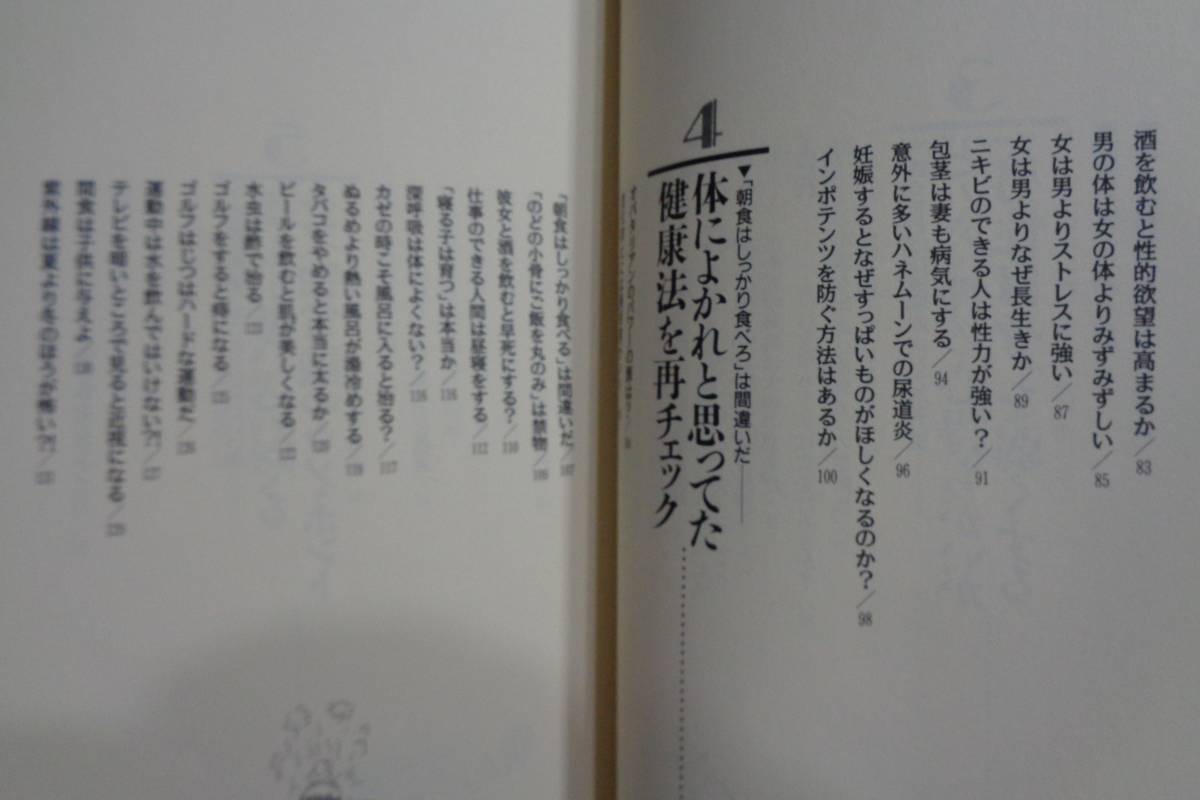 酒を飲むと性的欲望は高まるか/83
男の体は女の体よりみずみずしい/85
女は男よりストレスに強い/87
女は男よりなぜ長生きか/89
ニキビのできる人は性力が強い?/91
包茎は妻も病気にする/94
意外に多いハネムーンでの尿道炎/96
妊娠するとなぜすっぱいものがほしくなるのか?/98
インポテンツを防ぐ方法はあるか/100
4
▼「朝食はしっかり食べろ」は間違いだ――
体によかれと思ってた
健康法を再チェック
「朝食はしっかり食べる」は間違いだ/107
「のどの小骨にご飯を丸のみ」は禁物
彼女と酒を飲むと早死にする?/110
仕事のできる人間は昼寝をする/112
「寝る子は育つ」は本当か
深呼吸は体によくない?
カゼの時こそ風呂に入ると治る?/117
ぬるめより熱い風呂が湯冷めする
タバコをやめると本当に太るか
ビールを飲むと肌が美しくなる
水虫は熱で治る
ゴルフをすると痔になる
ゴルフはじつはハードな運動だ
運動中は水を飲んではいけない?!
テレビを暗いところで見ると近視になる
間食は子供に与えよ
紫外線は夏より冬のほうが怖い?!